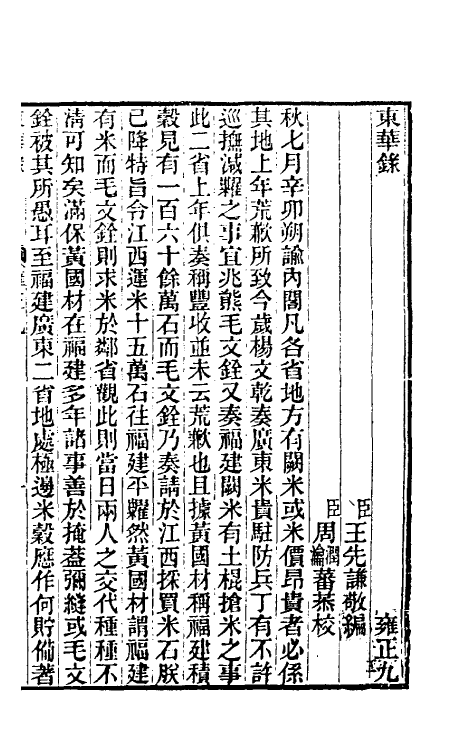 東華錄 雍正九
臣王先謙敬編
臣周潤蕃 綸恭校
秋七月辛卯朔諭內閣凡各省地方有闕米或米價昂貴者必係
其地上年荒歉所致今歲楊文乾奏廣東米貴駐防兵丁有不許
巡撫減糶之事宜兆熊毛文銓又奏福建闕米有土棍搶米之事
此二省上年俱奏稱豐收並未云荒歉也且據黃國材稱福建積
穀見有一百六十餘萬石而毛文銓乃奏請於江西採買米石朕
已降特旨令江西運米十五萬石往福建平糶然黃國材謂福建
有米而毛文銓則求米於鄰省觀此則當日兩人之交代種種不
清可知矣滿保黃國材在福建多年諸事善於掩葢彌縫或毛文
銓被其所愚耳至福建廣東二省地處極邊米穀應作何貯備著